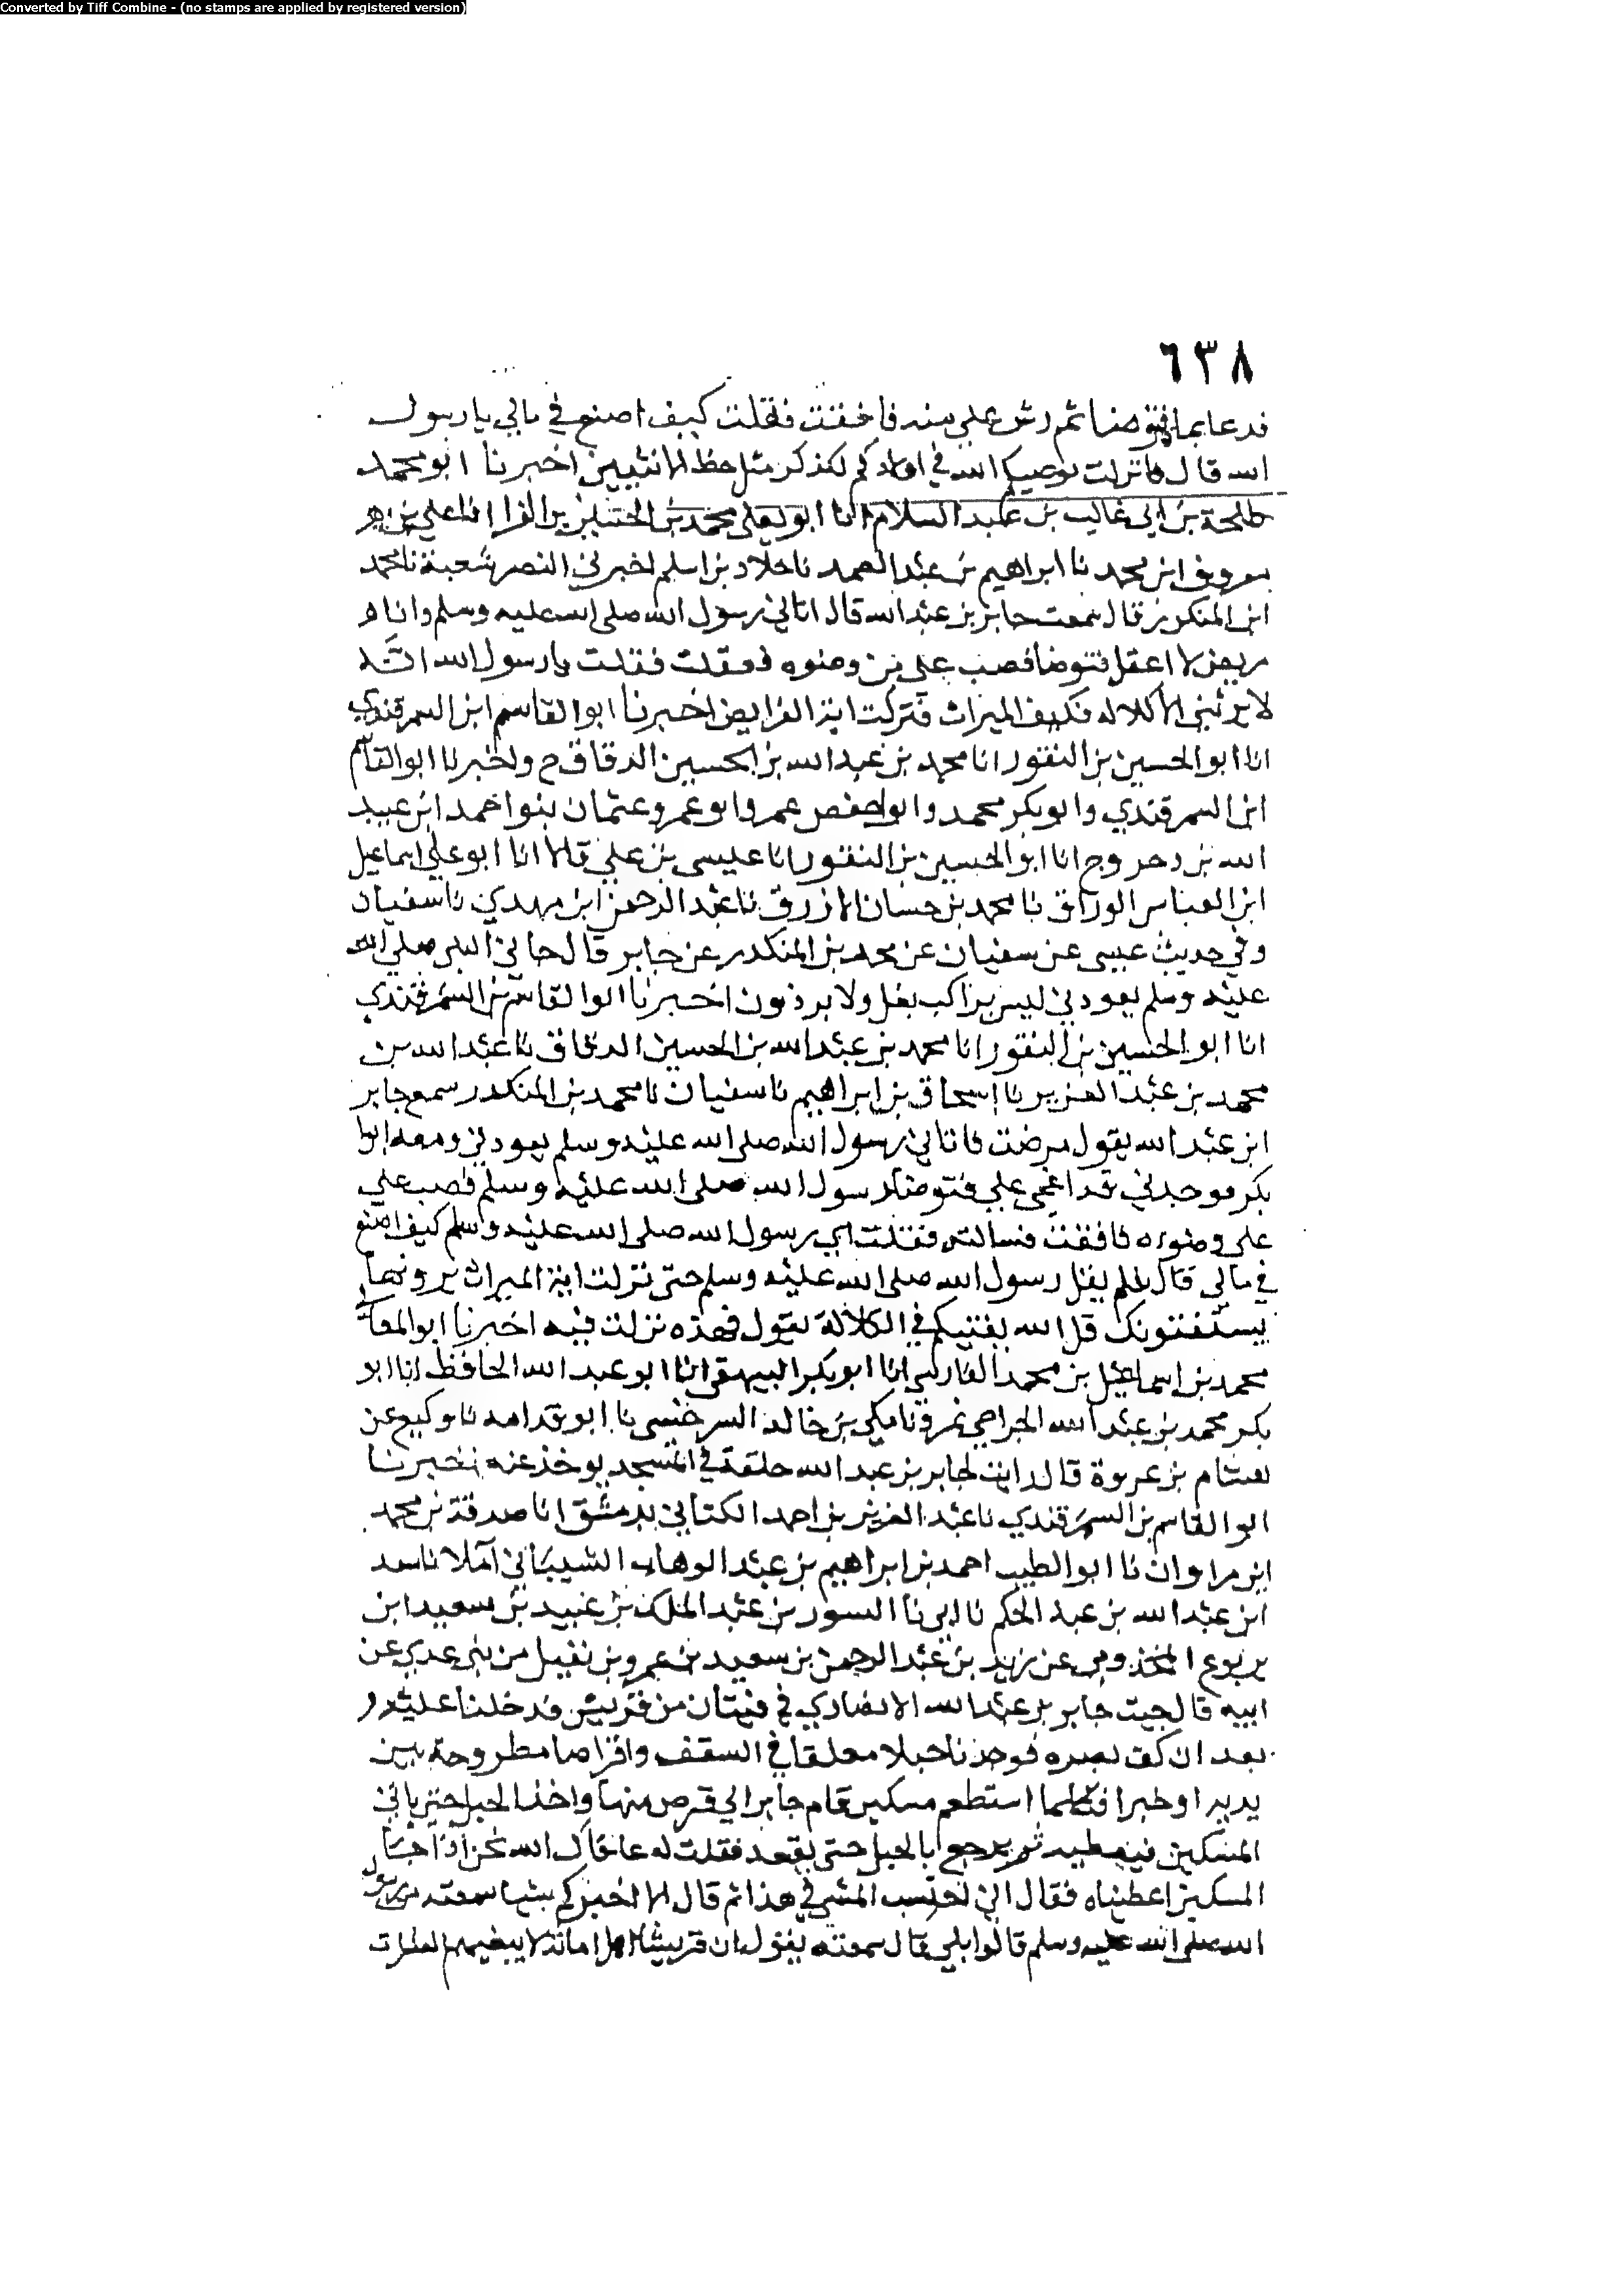 Converted by Tiff Combine - (no stamps are applied by registered version)
٦٣٨
فدعا بما فتوضا ثم رش علي منه فافقت فقلت كيف اصنع في مالي يا رسول
الله قال فانزلت يوصيكم الله في اولادكم للذكر مثل حظ الانثيين اخبرنا ابو محمد
طلحة بن ابي غالب بن عبد السلام انا ابو يعلى محمد بن الحسين بن الفرا انا علي بن
معروف ابن محمد نا ابراهيم بن عبد الصمد نا خلاد بن اسلم اخبرني النضر شعبة نا محمد
ابن المنكدر قال سمعت جابر بن عبد الله قال اتاني رسول الله صلى الله عليه وسلم وانا
مريض لا اعقل فتوضا فصب علي من وضوه فعقلت فقلت يا رسول الله انه
لا يرثني الا كلاله فكيف الميراث فنزلت اية الفرايض اخبرنا ابو القاسم ابن السمرقندي
انا ابو الحسين بن النقور انا محمد بن عبد الله بن الحسين الدقاق ح واخبرنا ابو القاسم
ابن السمرقندي وابو بكر محمد وابو حفص عمر وابو عمرو عثمان بنو احمد ابن عبيد
الله بن دحروج انا ابو الحسين بن النقور انا عيسى بن علي قالا انا ابو علي اسماعيل
ابن العباس الوراق نا محمد بن حسان الازرق نا عبد الرحمن ابن مهدي نا سفيان
وفي حديث عيسى عن سفيان عن محمد بن المنكدر عن جابر قال جاني النبي صلى الله
عليه وسلم يعودني ليس براكب بغل ولا برذون اخبرنا ابو القاسم بن السمرقندي
انا ابو الحسين بن النقور انا محمد بن عبد الله بن الحسين الدقاق نا عبد الله بن
محمد بن عبد العزيز نا اسحاق بن ابراهيم نا سفيان نا محمد بن المنكدر سمع جابر
ابن عبد الله يقول مرضت فاتاني رسول الله صلى الله عليه وسلم يعودني ومعه ابو
بكر فوجدني قد اغمي علي فتوضا رسول الله صلى الله عليه وسلم فصب علي
علي وضوءه فافقت فسالته فقلت اي رسول الله صلى الله عليه وسلم كيف اصنع
في مالي قال فلم يقل رسول الله صلى الله عليه وسلم حتى نزلت اية الميراث يرونها
يستفتونك قل الله يفتيكم في الكلالة يقول فهذه نزلت فيه اخبرنا ابو المعالي
محمد بن اسماعيل بن محمد الفارسي انا ابو بكر البيهقي انا ابو عبد الله الحافظ انا ابو
بكر محمد بن عبد الله الجراحي بمرو نا مكي بن خالد السرخسي نا ابو قدامه نا وكيع عن
هشام بن عروة قال رايت لجابر بن عبد الله حلقة في المسجد يوخذ عنه اخبرنا
ابو القاسم بن السمرقندي نا عبد العزيز بن احمد الكتاني بدمشق انا صدقة بن محمد
ابن مروان نا ابو الطيب احمد بن ابراهيم بن عبد الوهاب الشيباني املا نا سعد
ابن عبد الله بن عبد الحكم نا ابي نا المسور بن عبد الملك بن عبيد بن سعيد ابن
يربوع المخزومي عن زيد بن عبد الرحمن بن سعيد بن عمرو بن نفيل من بني عدي عن
ابيه قال جيت جابر بن عبد الله الانصاري في فتيان من قريش فدخلنا عليه
بعد ان كف بصره فوجدنا حبلا معلقا في السقف واقراصا مطروحة بين
يديه او خبزا فكلما استطعم مسكين قام جابر الي قرص منها واخذ الحبل حتى ياتي
المسكين فيعطيه ثم يرجع بالحبل حتى يقعد فقلت له عافاك الله نحن اذا جا
المسكين اعطيناه فقال اني احتسب المشي في هذا ثم قال الا اخبركم بشيا سمعته من رسول
الله صلى الله عليه وسلم قالوا بلي قال سمعته يقول ان قريشا اهل امانة لا يبغيهم العثرات